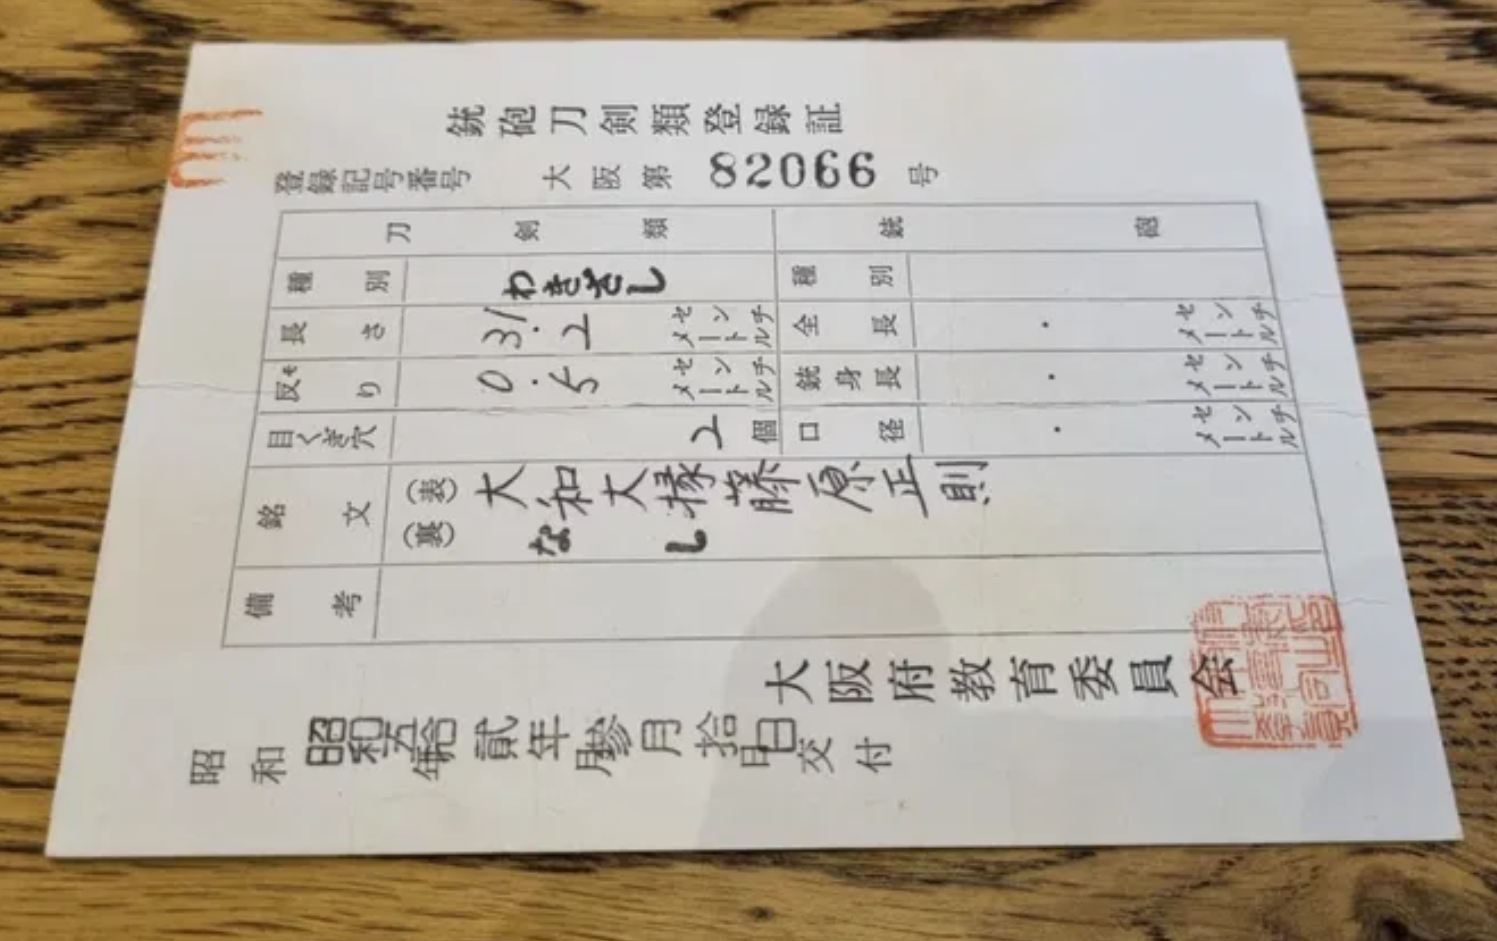 銃砲刀剣類登録証
登録記号番号 大阪第 82066 号
刀剣類 銃砲
種別 わきざし 種別
長さ 31.2 センチメートル 全長 . センチメートル
反り モ 0.5 センチメートル 銃身長 . センチメートル
目くぎ穴 2個 口径 . センチメートル
銘文 (表) 大和大掾藤原正則
(裏) なし
備考
大阪府教育委員会
昭和 年 月 日交付
昭和五拾貳年參月拾日